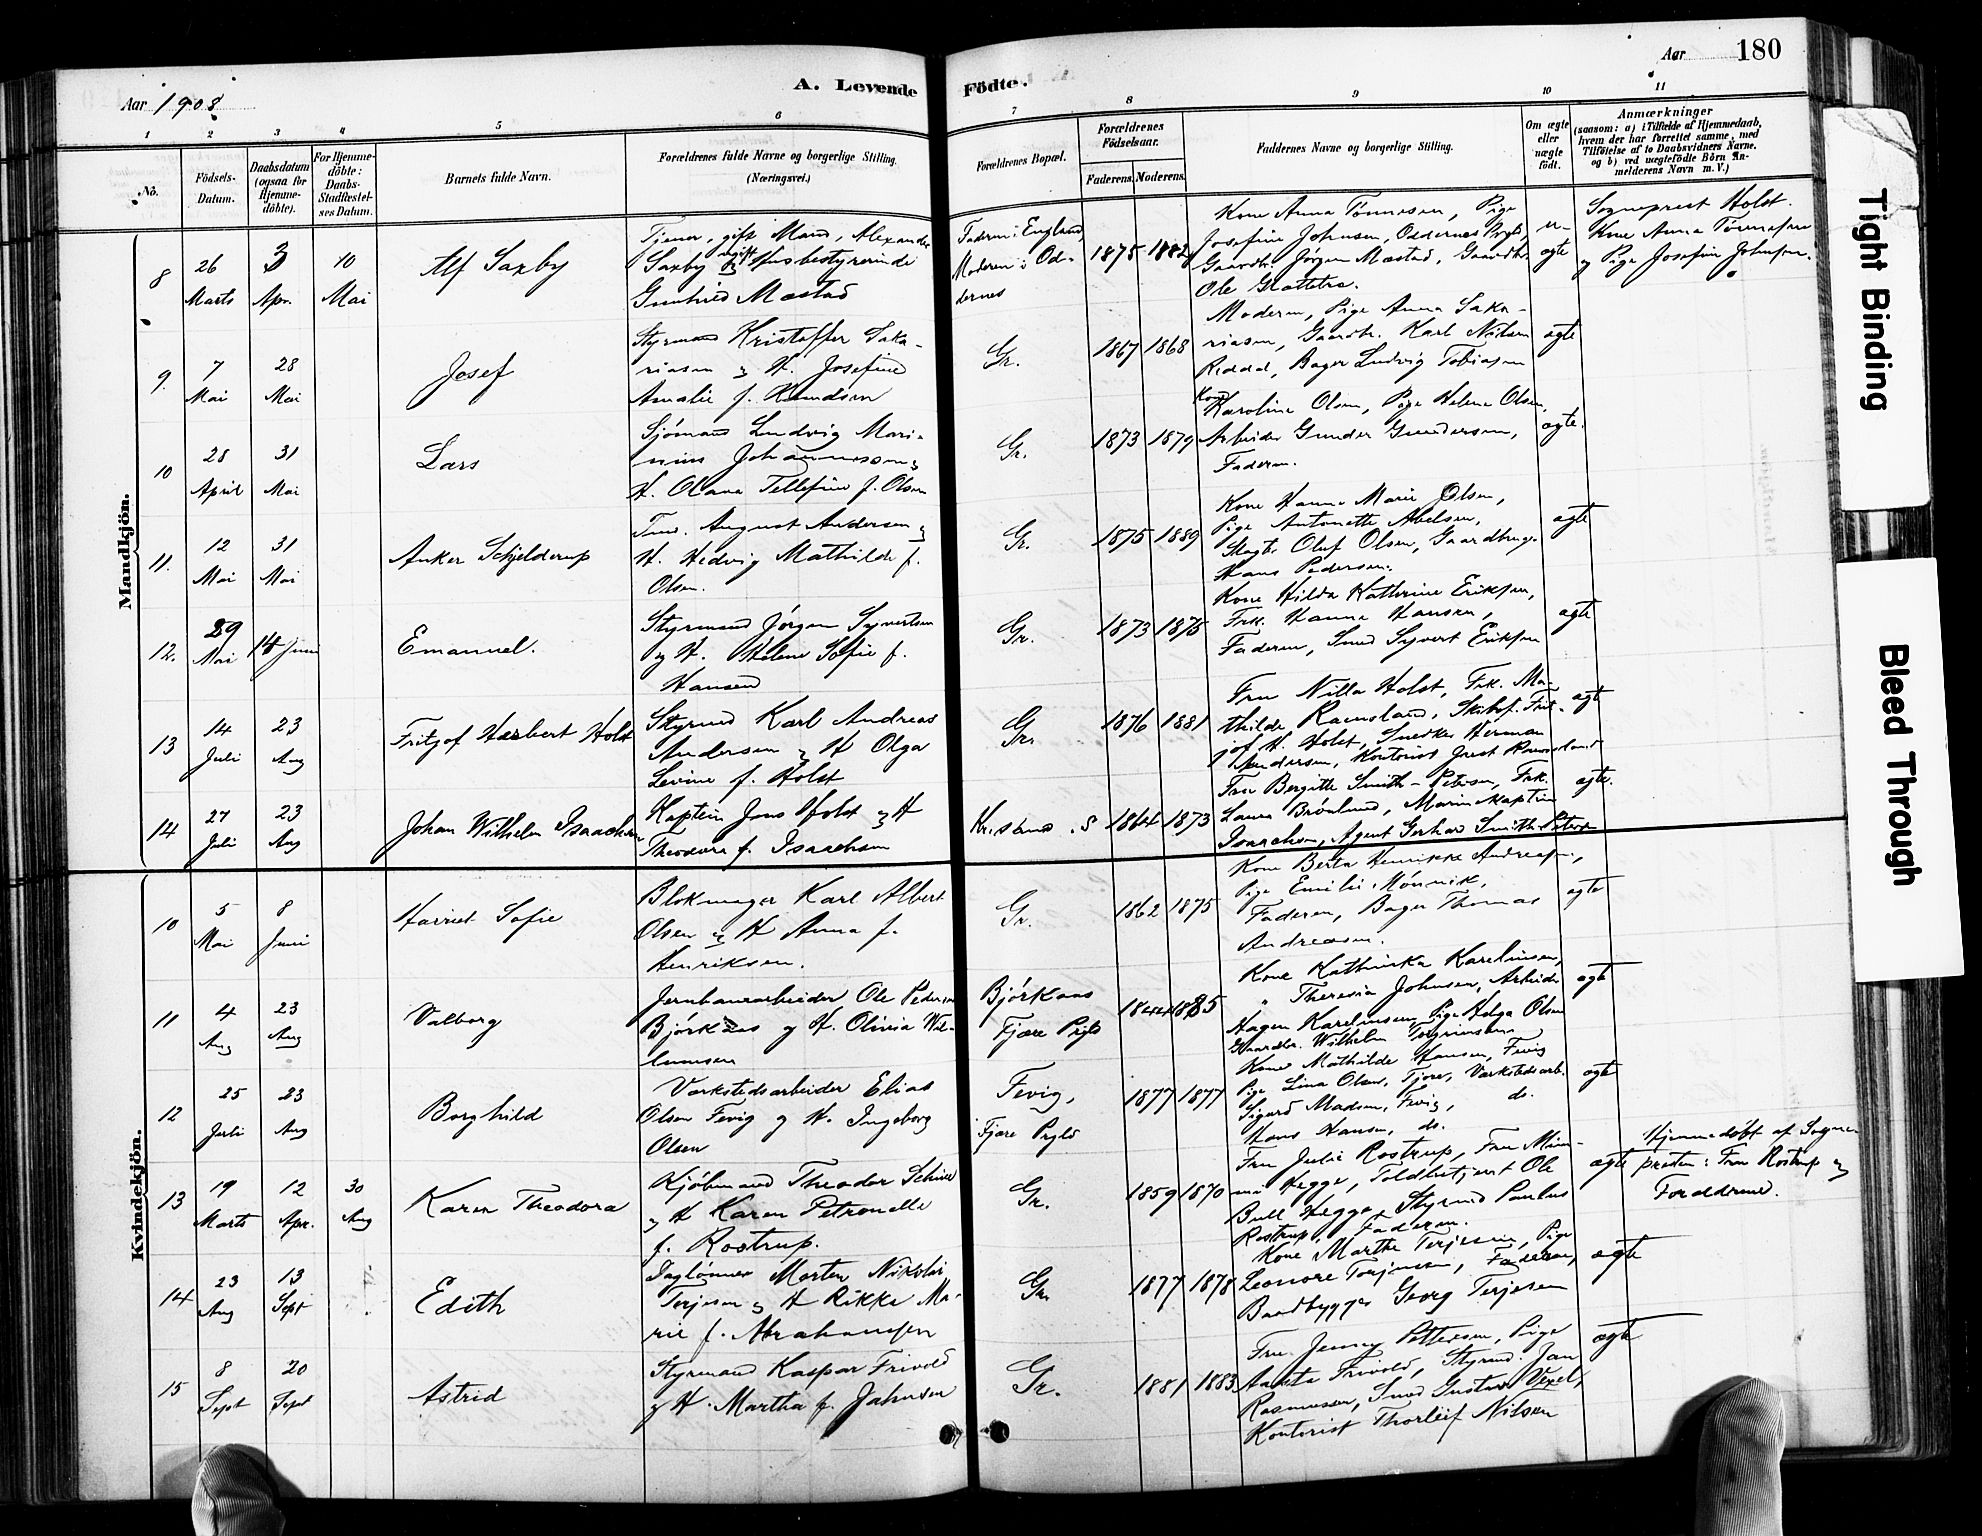 Aar 1908
A. Levende Födte.
Aar 180
1 2 3 4 5 6 7 8 9 10 11
No.
Födsels-Datum.
Daabsdatum (ogsaa for Hjemmedöbte).
For Hjemmedöbte: Daabs-Stadfæstelses Datum.
Barnets fulde Navn.
Forældrenes fulde Navne og borgerlige Stilling.
(Næringsvei.)
Forældrenes Bopæl.
Forældrenes Födselsaar.
Faderens. Moderens.
Faddernes Navne og borgerlige Stilling.
Om ægte eller uægte födt.
Anmærkninger
(saasom: a) i Tilfælde af Hjemmedaab, hvem der har forrettet samme, med Tilföielse af to Daabsvidners Navne. og b) ved uægtefödte Börn Anmelderens Navn m. V.)
Mandkjön.
8 26 Marts 3 Apr. 10 Mai Alf Saxby
Tjener, gift Mand, Alexander
Saxby og ugift Husbestyrerinde
Gunhild Mæstad
Faderen i England,
Moderen i Oddernes
1875 1882
Kone Anna Tönnesen, Pige
Josefine Johnsen, Oddernes Prgld,
Gaardbr. Jörgen Mæstad, Gaardbr.
Ole Grøttebra.
u-ægte
Sogneprest Holst.
Kone Anna Tönnesen
og Pige Josefine Johnsen.
9. 7 Mai 28 Mai Josef
Styrmand Kristoffer Saka-
riasen og H. Josefine
Amalie f. Knudsen
Gr. 1867 1868
Moderen, Pige Anna Saka-
riasen, Gaardbr. Karl Nilsen
Reddal, Bager Ludvig Tobiasen
ægte
10 28 April 31 Mai Lars
Sjömand Ludvig Mari-
nius Johannessen og
H. Olava Tellefine f. Olsen
Gr. 1873 1879
Kone
Karoline Olsen, Pige Helene Olsen,
Arbeider Gunder Gundersen,
Faderen.
ægte.
11. 12 Mai 31 Mai Anker Schjelderup
Tmd. August Andersen og
H. Hedvig Mathilde f.
Olsen.
Gr. 1875 1889
Kone Hanna Marie Olsen,
Pige Antonette Abelsen,
Slagter Oluf Olsen, Gaardbruger
Hans Pedersen.
ægte
12. 29 Mai 14 Juni Emanuel.
Styrmand Jörgen Syvertsen
og H. Helene Sofie f.
Hansen
Gr. 1873 1876
Kone Hilda Kathrine Eriksen,
Frk. Hanna Hansen,
Faderen, Smed Syvert Eriksen
ægte
13 14 Juli 23 Aug Fritjof Herbert Holst
Styrmd Karl Andreas
Andersen og H Olga
Levine f. Holst
Gr. 1876 1881
Fru Nilla Holst, Frk. Ma-
thilde Ravnsland, Skibsf. Frit-
jof H. Holst, Snedker Herman
Andersen, Kontorist Just Ravnsland
ægte
14 27 Juli 23 Aug Johan Wilhelm Isaachsen
Kaptein Jens Holst og H
Theodora f. Isaachsen
Kristians. S 1864 1873
Fru Bergitte Smith-Petersen, Frk.
Laura Brönlund, Marinekaptein
Isaachsen, Agent Gerhard Smith-Petersen
ægte.
Kvindekjön.
10 5 Mai 8 Juni Harriet Sofie
Blokmager Karl Albert
Olsen og H Anna f.
Henriksen.
Gr. 1862 1875
Kone Berta Henrikke Andreasen,
Pige Emilie Mönnik,
Faderen, Bager Thomas
Andreasen.
ægte
11 4 Aug 23 Aug Valborg
Jernbanearbeider Ole Pedersen
Björkaas og H. Olivia Wil-
lumsen
Björkaas
Fjære Prgld
1844 1885
Kone Kathinka Karelinsen,
" Theresia Johnsen, Arbeider
Hagen Karelinsen, Pige Helga Olsen
Gaardbr. Wilhelm Torgrimsen
ægte
12 25 Juli 23 Aug Borghild
Værkstedsarbeider Elias
Olsen Fevig og H. Ingeborg
Olsen
Fevig,
Fjære Prgld
1877 1877
Kone Mathilde Hansen, Fevig
Pige Lina Olsen, Fjære, Værkstedsarb.
Sigurd Madsen, Fevig, do.
Hans Hansen, do.
ægte
13 19 Marts 12 Apr. 30 Aug Karen Theodora
Kjöbmand Theodor
og H Karen Petronelle
f. Rostrup.
Gr. 1859 1870
Fru Julie Rostrup, Fru Min-
na Hegge, Toldbetjent Ole
Bull Hegge, Styrmd Paulus
Rostrup, Faderen.
ægte
Hjemmedöbt af Sogne-
presten: Fru Rostrup og
Forældrene.
14 23 Aug 13 Sept Edith
Daglønner Morten Nikolai
Terjesen og H Rikka Ma-
rie f. Abrahamsen
Gr. 1877 1878
Kone Marthe Terjesen, Pige
Leonore Terjesen, Faderen,
Baadbygger Georg Terjesen
ægte
15 8 Sept 20 Sept Astrid
Styrmand Kaspar Frivold
og H. Martha f. Jahnsen
Gr. 1881 1883
Fru Jenny Pettersen, Pige
Aasta Frivold, Styrmd. Jan
Rasmussen, Smed Gustav Vexel,
Kontorist Thorleif Nilsen
ægte
Tight Binding
Bleed Through